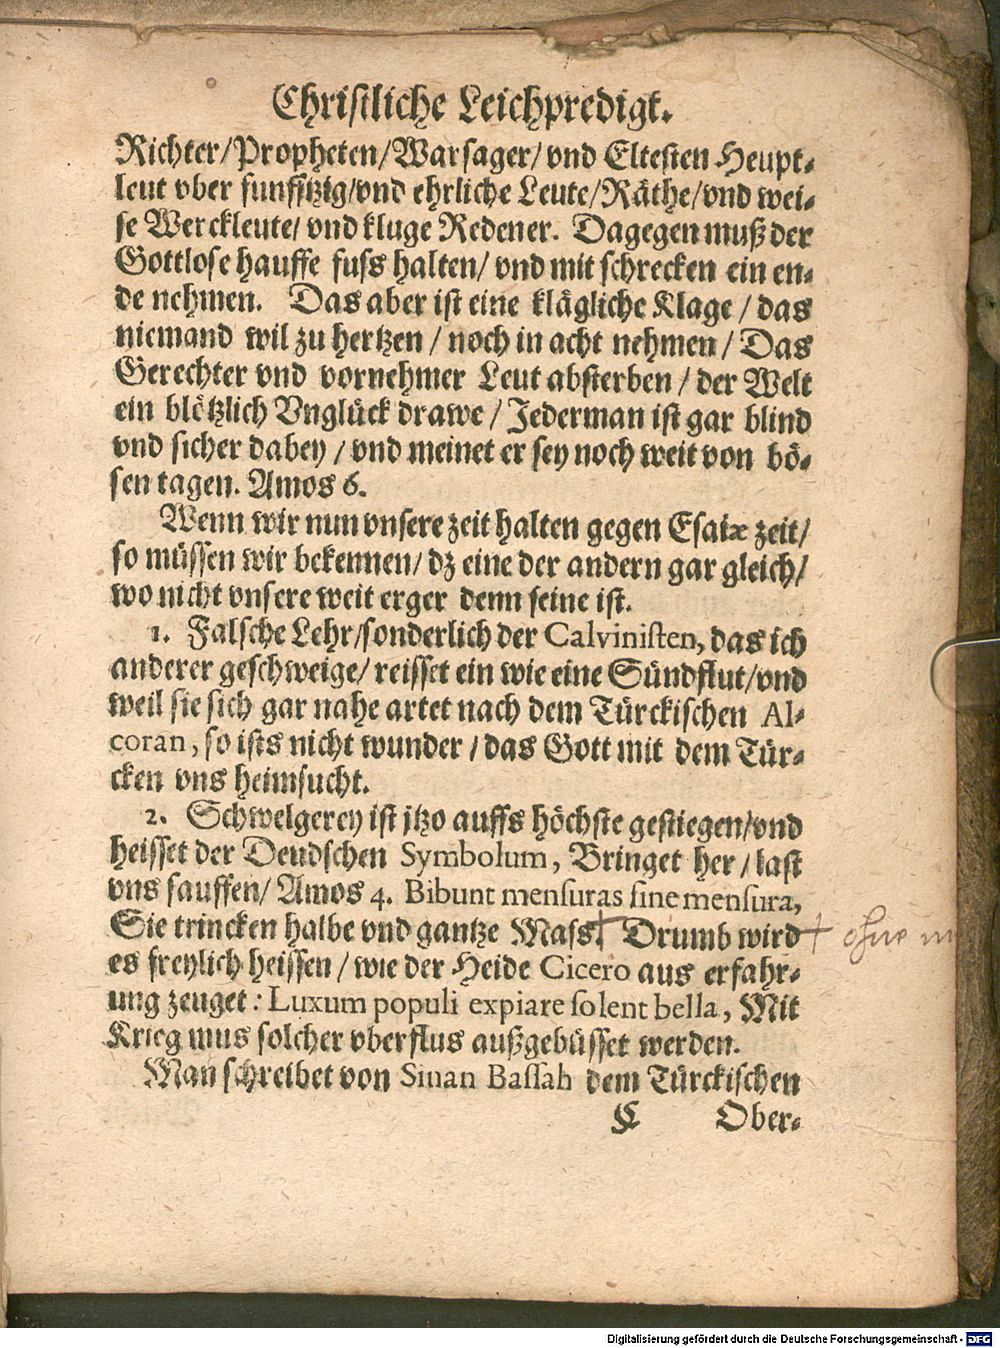 Christliche Leichpredigt.
Richter/Propheten/Warsager/vnd Eltesten Heupt-
leut vber funfftzig/vnd ehrliche Leute/Räthe/vnd wei-
se Werckleute/ vnd kluge Redener. Dagegen muß der
Gottlose hauffe fuss halten/ vnd mit schrecken ein en-
de nehmen. Das aber ist eine klägliche Klage / das
niemand wil zu hertzen / noch in acht nehmen / Das
Gerechter vnd vornehmer Leut absterben / der Welt
ein blötzlich Vnglück drawe / Jederman ist gar blind
vnd sicher dabey / vnd meinet er sey noch weit von bö-
sen tagen. Amos 6.
Wenn wir nun vnsere zeit halten gegen Esaiæ zeit/
so müssen wir bekennen/ dz eine der andern gar gleich/
wo nicht vnsere weit erger denn seine ist.
1. Falsche Lehr/sonderlich der Calvinisten, das ich
anderer geschweige/ reisset ein wie eine Sündflut/vnd
weil sie sich gar nahe artet nach dem Türckischen Al-
coran, so ists nicht wunder / das Gott mit dem Tür-
cken vns heimsucht.
2. Schwelgerey ist jtzo auffs höchste gestiegen/vnd
heisset der Deudschen Symbolum, Bringet her / last
vns sauffen/ Amos 4. Bibunt mensuras sine mensura,
Sie trincken halbe vnd gantze Mass† Drumb wird † ohne
es freylich heissen / wie der Heide Cicero aus erfahr-
ung zeuget: Luxum populi expiare solent bella, Mit
Krieg mus solcher vberflus außgebüsset werden.
Man schreibet von Sinan Bassah dem Türckischen
C Ober-
Digitalisierung gefördert durch die Deutsche Forschungsgemeinschaft - DFG